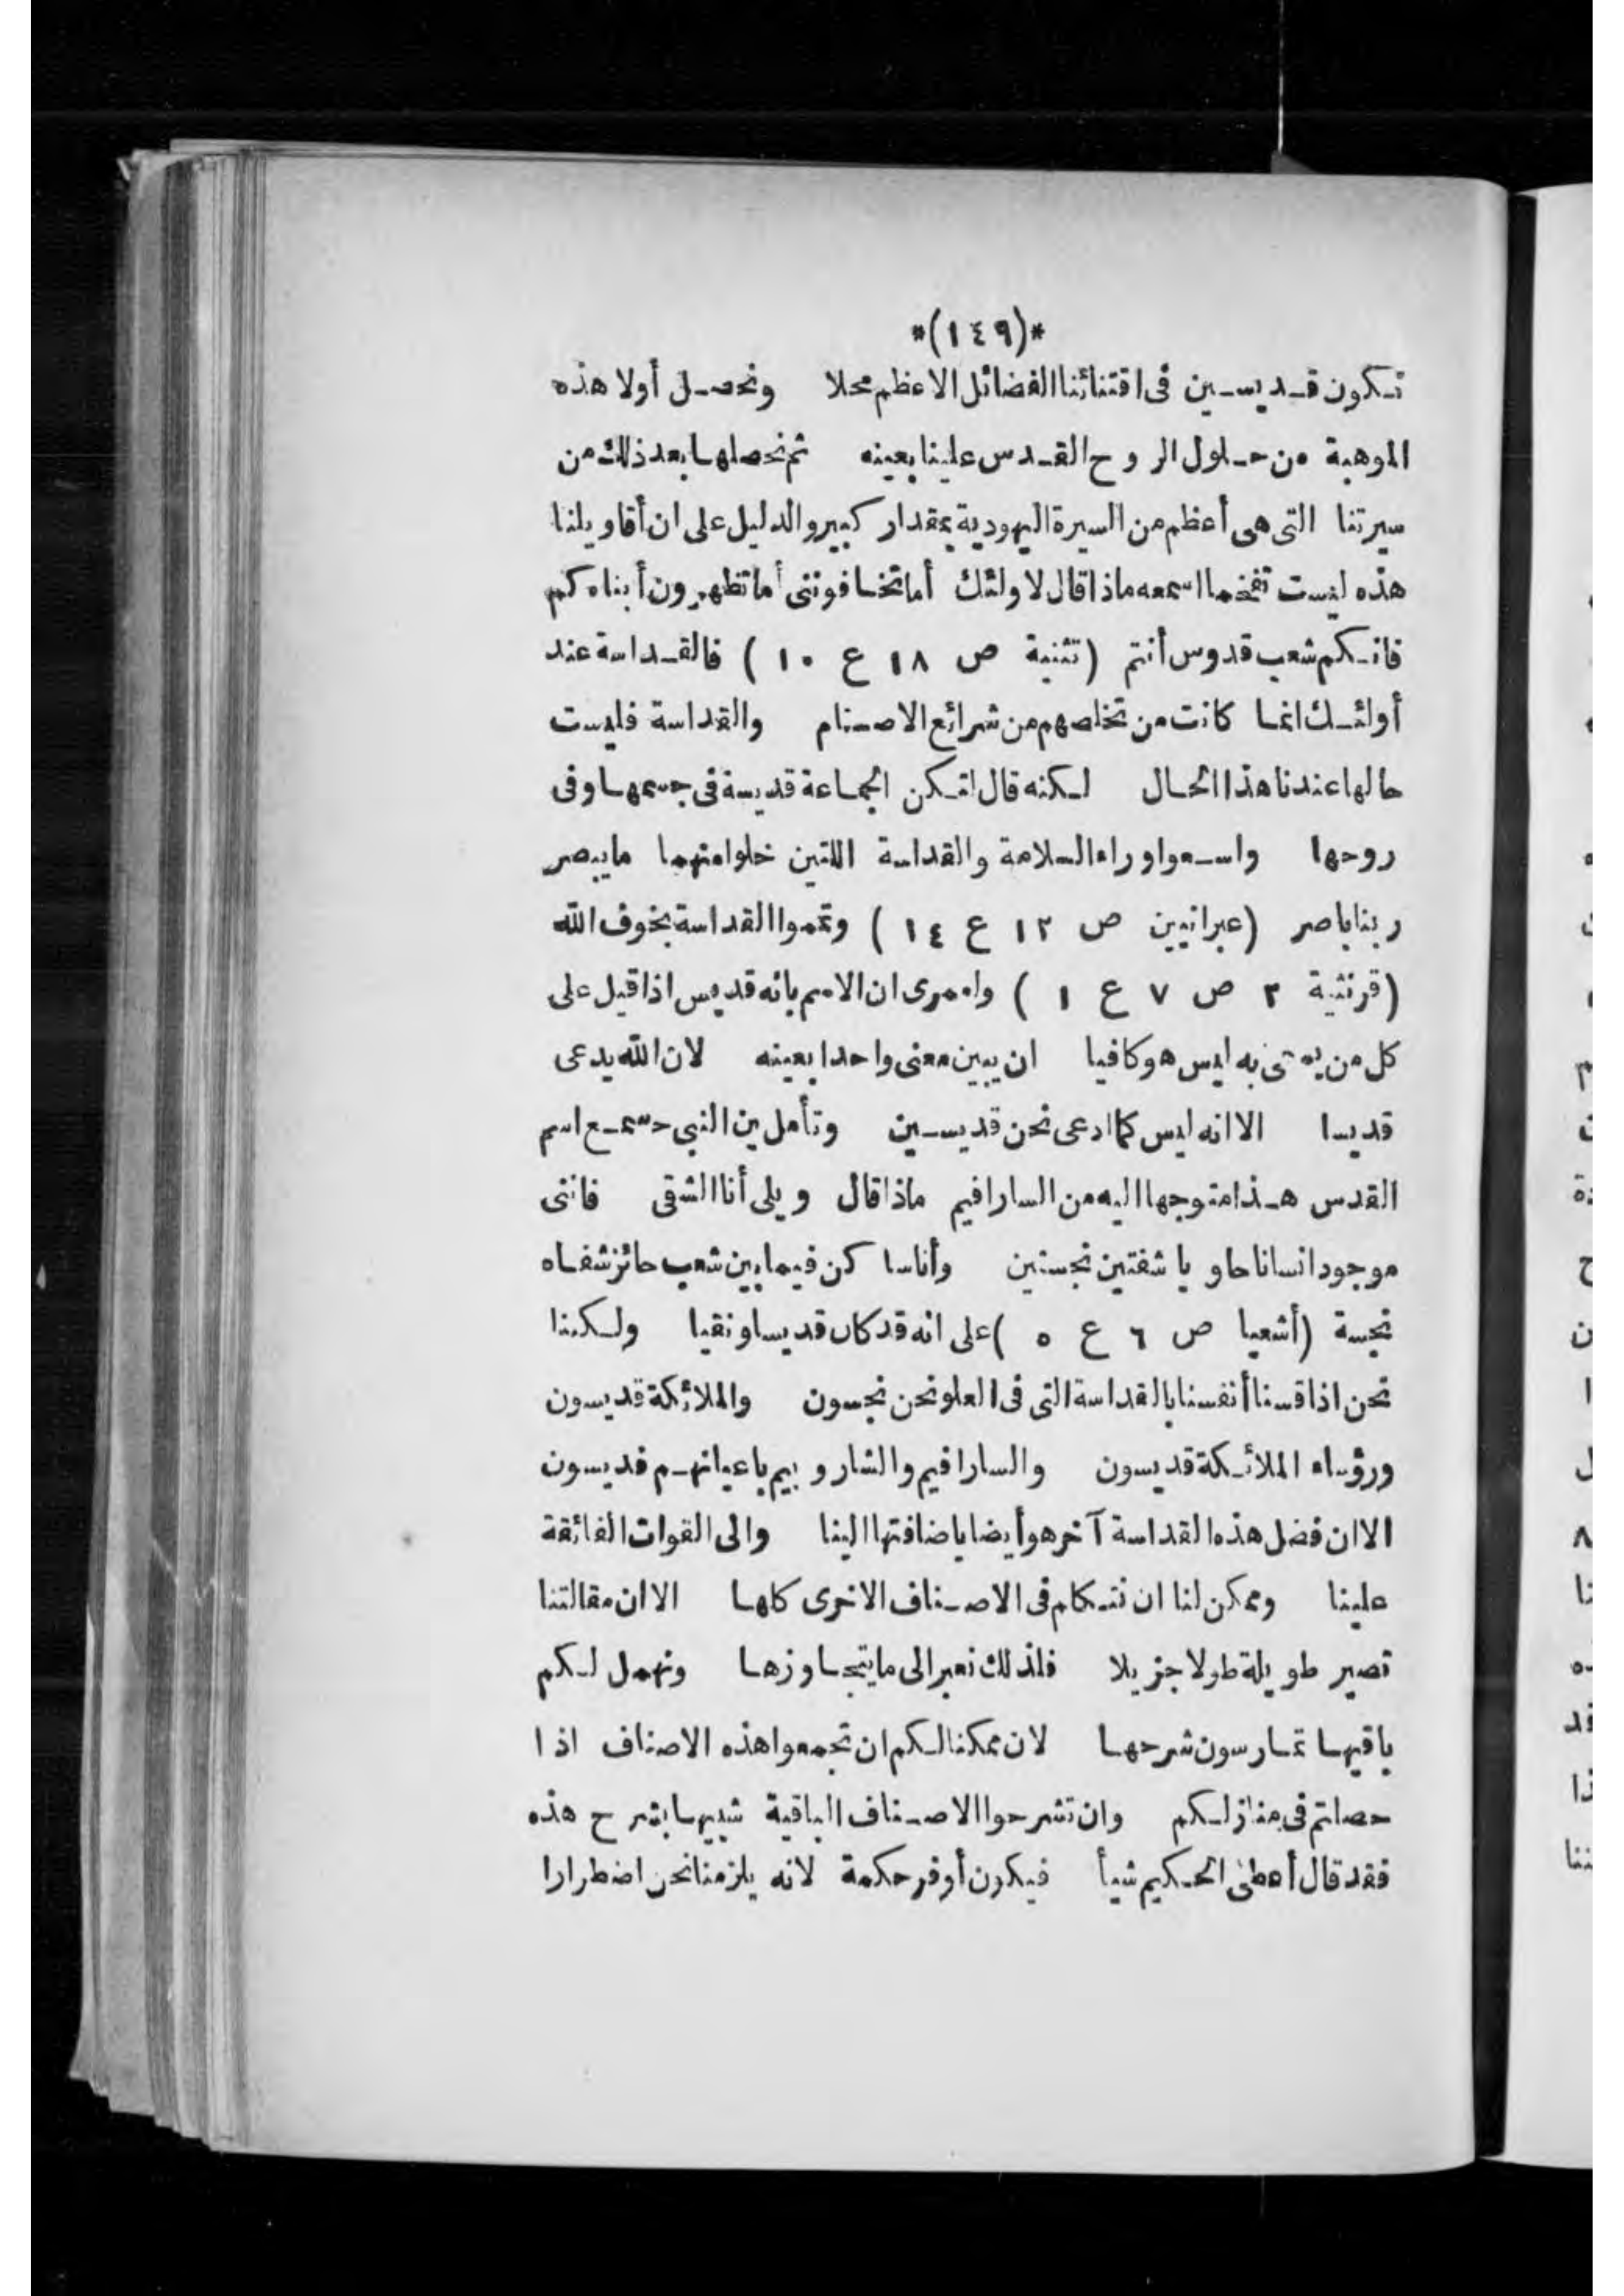 *(١٤٩)*
تكون قديسين فى اقتنائنا الفضائل الاعظم محلا ونحصل أولا هذه
الموهبة من حلول الروح القدس علينا بعينه ثم نحصلها بعد ذلك من
سيرتنا التى هى أعظم من السيرة اليهودية بمقدار كبير والدليل على ان أقاويلنا
هذه ليست تفخما اسمعه ماذا قال لاولئك أما تخافوننى أما تطهرون أبناءكم
فانكم شعب قدوس أنتم (تثنية ص ١٨ ع ١٠ ) فالقداسة عند
أولئك انما كانت من تخلصهم من شرائع الاصنام والقداسة فليست
حالها عندنا هذا الحال لكنه قال لتكن الجماعة قديسة فى جسمها وفى
روحها واسعوا وراء السلامة والقداسة اللتين خلوا منهما ما يبصر
ربنا باصر (عبرانيين ص ١٢ ع ١٤ ) وتمموا القداسة بخوف الله
(قرنثية ٢ ص ٧ ع ١ ) ولعمرى ان الاسم بانه قديس اذا قيل على
كل من يسمى به ليس هو كافيا ان يبين معنى واحدا بعينه لان الله يدعى
قديسا الا انه ليس كما ادعى نحن قديسين وتأملين النبى حسمع اسم
القدس هذا متوجها اليه من السارافيم ماذا قال ويلى أنا الشقى فاننى
موجود انسانا حاويا شفتين نجستين وأنا ساكن فيما بين شعب حائز شفاه
نجسة (أشعيا ص ٦ ع ٥ ) على انه قد كان قديسا ونقيا ولكننا
نحن اذا قسنا أنفسنا بالقداسة التى فى العلو نحن نجسون والملائكة قديسون
ورؤساء الملائكة قديسون والسارافيم والشاروبيم باعيانهم قديسون
الا ان فضل هذه القداسة آخر هو أيضا باضافتها الينا والى القوات الفائقة
علينا وممكن لنا ان نتكلم فى الاصناف الاخرى كلها الا ان مقالتنا
تصير طويلة طولا جزيلا فلذلك نعبر الى ما يتجاوزها ونهمل لكم
باقيها تمارسون شرحها لان ممكنا لكم ان تجمعوا هذه الاصناف اذا
حصلتم فى منازلكم وان تشرحوا الاصناف الباقية شبيها بشرح هذه
فقد قال أعطى الحكيم شيأ فيكون أوفر حكمة لانه يلزمنا نحن اضطرارا